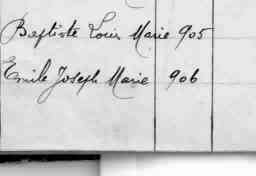 Baptiste Louis Marie 905
Emile Joseph Marie 906